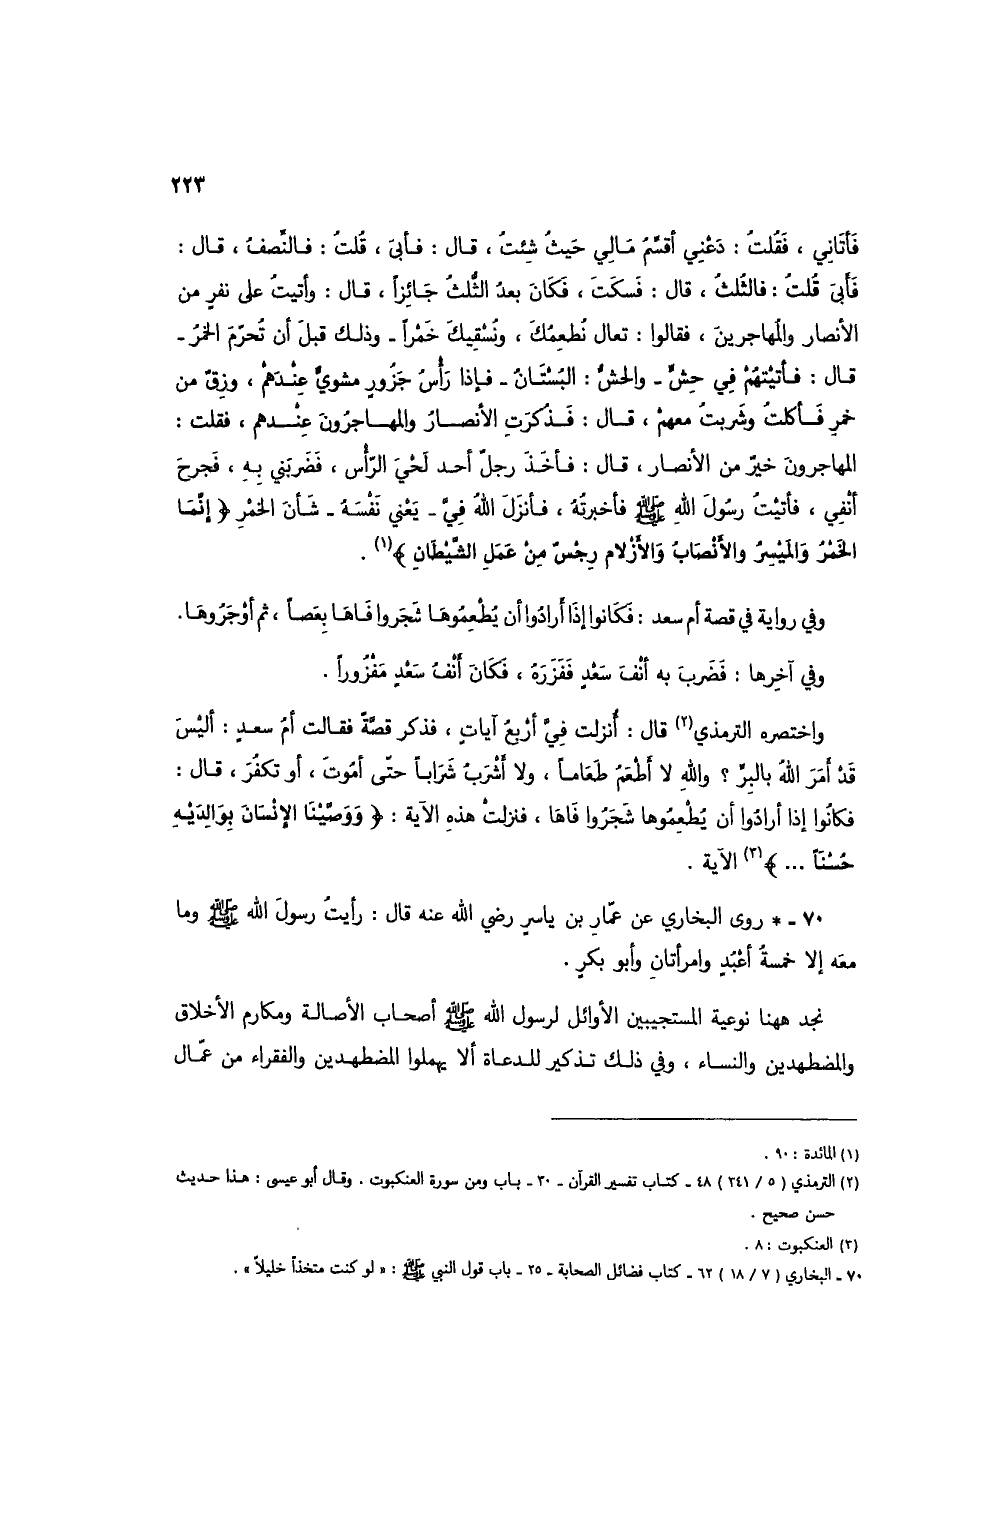 ٢٢٣
فَأتَانِي ، فَقُلتُ : دَعْنِي أقسِّمُ مَالِي حَيثُ شِئتُ ، قال : فأبىٰ ، قُلتُ : فالنَّصفُ ، قال :
فَأَبىٰ قُلتُ : فالثُلثُ ، قال : فَسكَتَ ، فَكَانَ بعدُ الثُّلثُ جَائِزاً ، قال : وأتيتُ على نفرٍ من
الأنصار والمُهاجرينَ ، فقالوا : تعال نُطعِمُكَ ، ونُسْقِيكَ خَمْراً ـ وذلك قبلَ أن تُحرّمَ الخمرُ ـ
قال : فأتيْتهُمْ فِي حِشٍّ ـ والحشُّ : البُسْتَانُ ـ فإذا رَأْسُ جَزُورٍ مشويٌّ عِنْدَهُمْ ، وزِقٌّ من
خمرٍ فَأكلتُ وشَربتُ معهمْ ، قال : فَذُكرَتِ الأنصارُ والمهاجرُونَ عِنْدهم ، فقلت :
المهاجرونَ خيرٌ من الأنصار ، قال : فأخَذَ رجلٌ أحد لَحْيَ الرّأْس ، فَضَربَني بِهِ ، فَجرحَ
أنْفِي ، فأتيْتُ رسُولَ اللهِ ﷺ فأخبرتُهُ ، فأنزَلَ اللهُ فِيَّ ـ يَعْني نَفْسَهُ ـ شَأنَ الخمْرِ ﴿ إنَّمَا
الخَمْرُ وَالمَيْسِرُ والأَنْصَابُ وَالأَزْلام رِجْسٌ مِنْ عَمَلِ الشَّيْطَانِ ﴾(١) .
وفي رواية في قصة أم سعد : فَكَانوا إذَا أَرادُوا أن يُطْعِمُوهَا شَجَروا فَاهَا بِعَصاً ، ثم أوْجَرُوهَا.
وفي آخِرها : فَضَربَ به أنْفَ سَعْدٍ فَفَزَرَهُ ، فَكَانَ أَنْفُ سَعْدٍ مَفْزُوراً .
واختصره الترمذي(٢) قال : أُنزلت فِيَّ أرْبعُ آياتٍ ، فذكر قصَّةً فقالت أمُ سعدٍ : أليْسَ
قَدْ أَمَرَ اللهُ بالبِرِّ ؟ واللهِ لا أَطْعَمُ طَعَاماً ، ولا أَشْرَبُ شَرَاباً حتّى أمُوتَ ، أو تكفُرَ ، قال :
فكانُوا إذا أرادُوا أن يُطْعِمُوها شَجَرُوا فَاهَا ، فنزلتْ هذهِ الآية : ﴿ وَوَصَّيْنَا الإنْسَانَ بِوَالِدَيْهِ
حُسْنَاً ... ﴾(٣) الآية .
٧٠ ـ * روى البخاري عن عمّارِ بن ياسرٍ رضي الله عنه قال : رأيتُ رسولَ الله ﷺ وما
معَه إلا خمسةُ أعْبُدٍ وامرأتانِ وأبو بكرٍ .
نجد ههنا نوعية المستجيبين الأوائل لرسول الله ﷺ أصحاب الأصالة ومكارم الأخلاق
والمضطهدين والنساء ، وفي ذلك تذكير للدعاة ألا يهملوا المضطهدين والفقراء من عمّال
(١) المائدة : ٩٠ .
(٢) الترمذي ( ٥ / ٣٤١ ) ٤٨ ـ كتاب تفسير القرآن ـ ٣٠ ـ باب ومن سورة العنكبوت . وقال أبو عيسى : هذا حديث
حسن صحيح .
(٣) العنكبوت : ٨ .
٧٠ ـ البخاري ( ٧ / ١٨ ) ٦٢ ـ كتاب فضائل الصحابة ـ ٢٥ ـ باب قول النبي ﷺ : « لو كنت متخذاً خليلاً » .